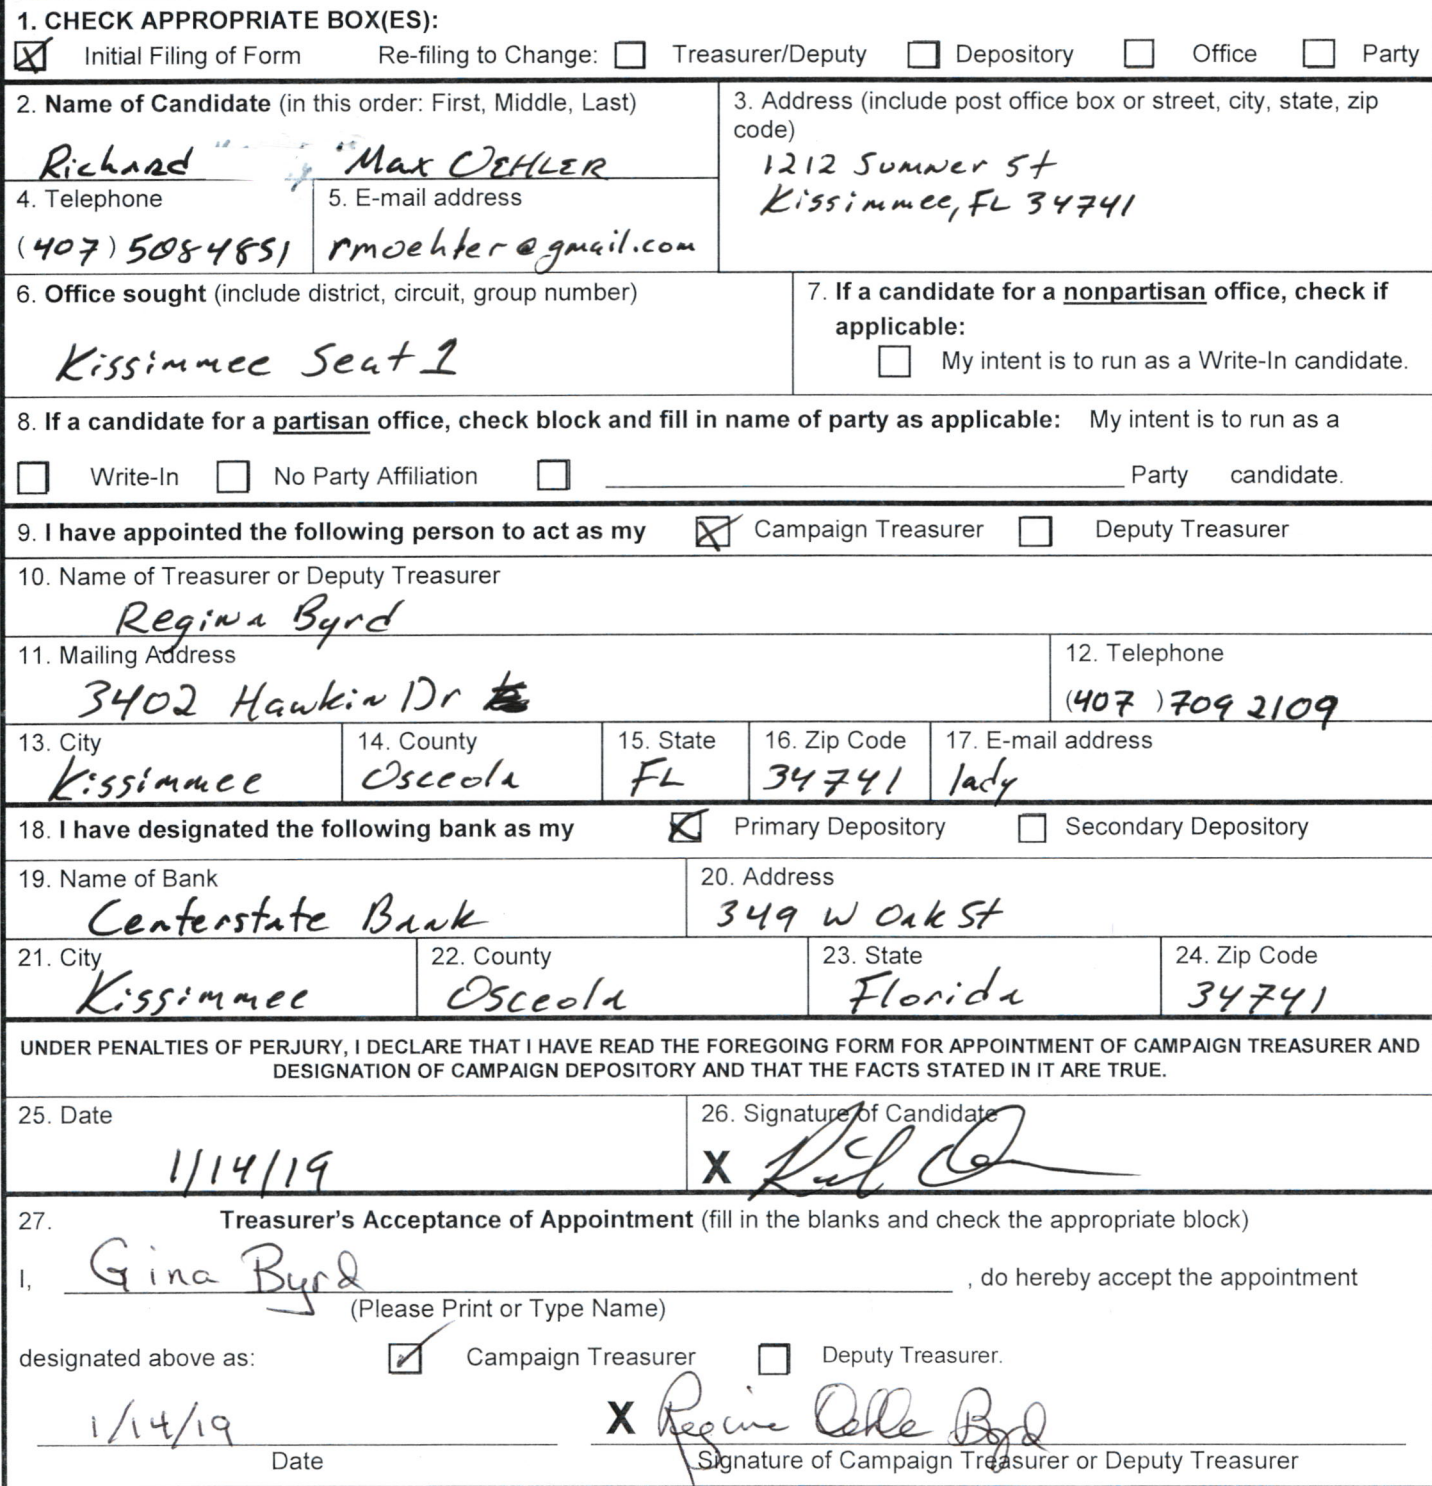 1. CHECK APPROPRIATE BOX(ES):
Initial Filing of Form Re-filing to Change: Treasurer/Deputy Depository Office Party
2. Name of Candidate (in this order: First, Middle, Last)
Richard "Max OEHLER
3. Address (include post office box or street, city, state, zip
code)
1212 Sumner St
Kissimmee, FL 34741
4. Telephone
(407) 5084851
5. E-mail address
rmoehler@gmail.com
6. Office sought (include district, circuit, group number)
Kissimmee Seat 1
7. If a candidate for a nonpartisan office, check if
applicable:
My intent is to run as a Write-In candidate.
8. If a candidate for a partisan office, check block and fill in name of party as applicable: My intent is to run as a
Write-In No Party Affiliation Party candidate.
9. I have appointed the following person to act as my Campaign Treasurer Deputy Treasurer
10. Name of Treasurer or Deputy Treasurer
Regina Byrd
11. Mailing Address
3402 Hawkin Dr
12. Telephone
(407) 709 2109
13. City
Kissimmee
14. County
Osceola
15. State
FL
16. Zip Code
34741
17. E-mail address
lady
18. I have designated the following bank as my Primary Depository Secondary Depository
19. Name of Bank
Centerstate Bank
20. Address
349 W Oak St
21. City
Kissimmee
22. County
Osceola
23. State
Florida
24. Zip Code
34741
UNDER PENALTIES OF PERJURY, I DECLARE THAT I HAVE READ THE FOREGOING FORM FOR APPOINTMENT OF CAMPAIGN TREASURER AND
DESIGNATION OF CAMPAIGN DEPOSITORY AND THAT THE FACTS STATED IN IT ARE TRUE.
25. Date
1/14/19
26. Signature of Candidate
X
27. Treasurer's Acceptance of Appointment (fill in the blanks and check the appropriate block)
I, Gina Byrd , do hereby accept the appointment
(Please Print or Type Name)
designated above as: Campaign Treasurer Deputy Treasurer.
1/14/19 X Regina Byrd
Date Signature of Campaign Treasurer or Deputy Treasurer